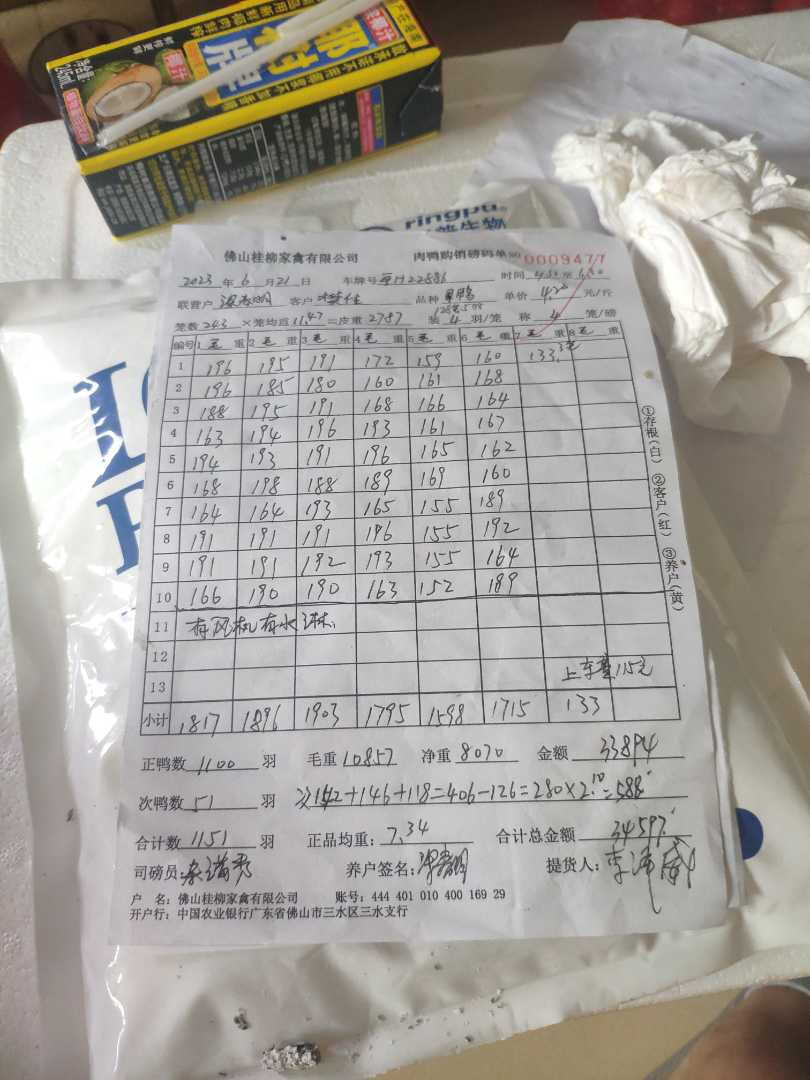 椰树牌
245mL
ringpu
佛山桂柳家禽有限公司 肉鸭购销磅码单 NO 0009477
2023 年 6 月 21 日 车牌号 时间
联营户 客户 品种 单价 4.20 元/斤
笼数 243 ×笼均重 11.47 =皮重 2787 装 4 羽/笼 称 4 笼/磅
编号 1 毛 重 2 毛 重 3 毛 重 4 毛 重 5 毛 重 6 毛 重 7 毛 重 8 毛 重
1 196 195 191 172 159 160 133
2 196 185 180 160 161 168
3 188 195 191 168 166 164
4 163 194 196 193 161 167
5 194 193 191 196 165 162
6 168 198 188 189 169 160
7 164 164 193 165 155 189
8 191 191 191 196 155 192
9 191 191 192 193 155 164
10 166 190 190 163 152 189
11 有风机有水淋
12
13 上车重115元
小计 1817 1896 1903 1795 1598 1715 133
①存根(白) ②客户(红) ③养户(黄)
正鸭数 1100 羽 毛重 10857 净重 8070 金额 33894
次鸭数 51 羽 142+146+118=406-126=280×2.10=588
合计数 1151 羽 正品均重: 7.34 合计总金额 34597
司磅员: 养户签名: 提货人:
户 名: 佛山桂柳家禽有限公司 账号: 444 401 010 400 169 29
开户行: 中国农业银行广东省佛山市三水区三水支行